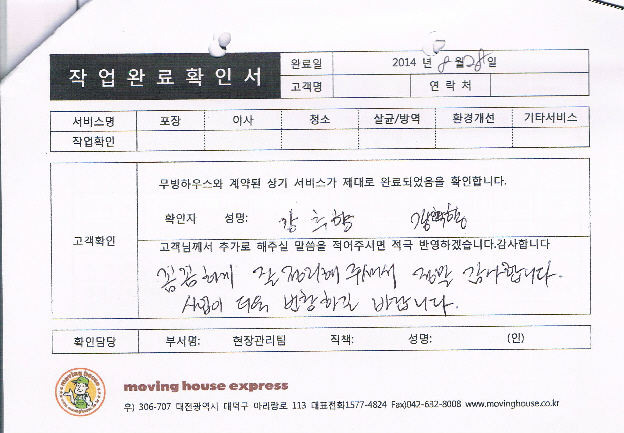 작업완료확인서
완료일 2014 년 8 월 28 일
고객명 연락처
서비스명 포장 이사 청소 살균/방역 환경개선 기타서비스
작업확인
고객확인
무빙하우스와 계약된 상기 서비스가 제대로 완료되었음을 확인합니다.
확인자 성명:
고객님께서 추가로 해주실 말씀을 적어주시면 적극 반영하겠습니다.감사합니다
꼼꼼하게 잘 정리해 주셔서 정말 감사합니다.
사업이 더욱 번창하길 바랍니다.
확인담당 부서명: 현장관리팀 직책: 성명: (인)
moving house
moving house express
우) 306-707 대전광역시 대덕구 아리랑로 113 대표전화1577-4824 Fax)042-632-8008 www.movinghouse.co.kr